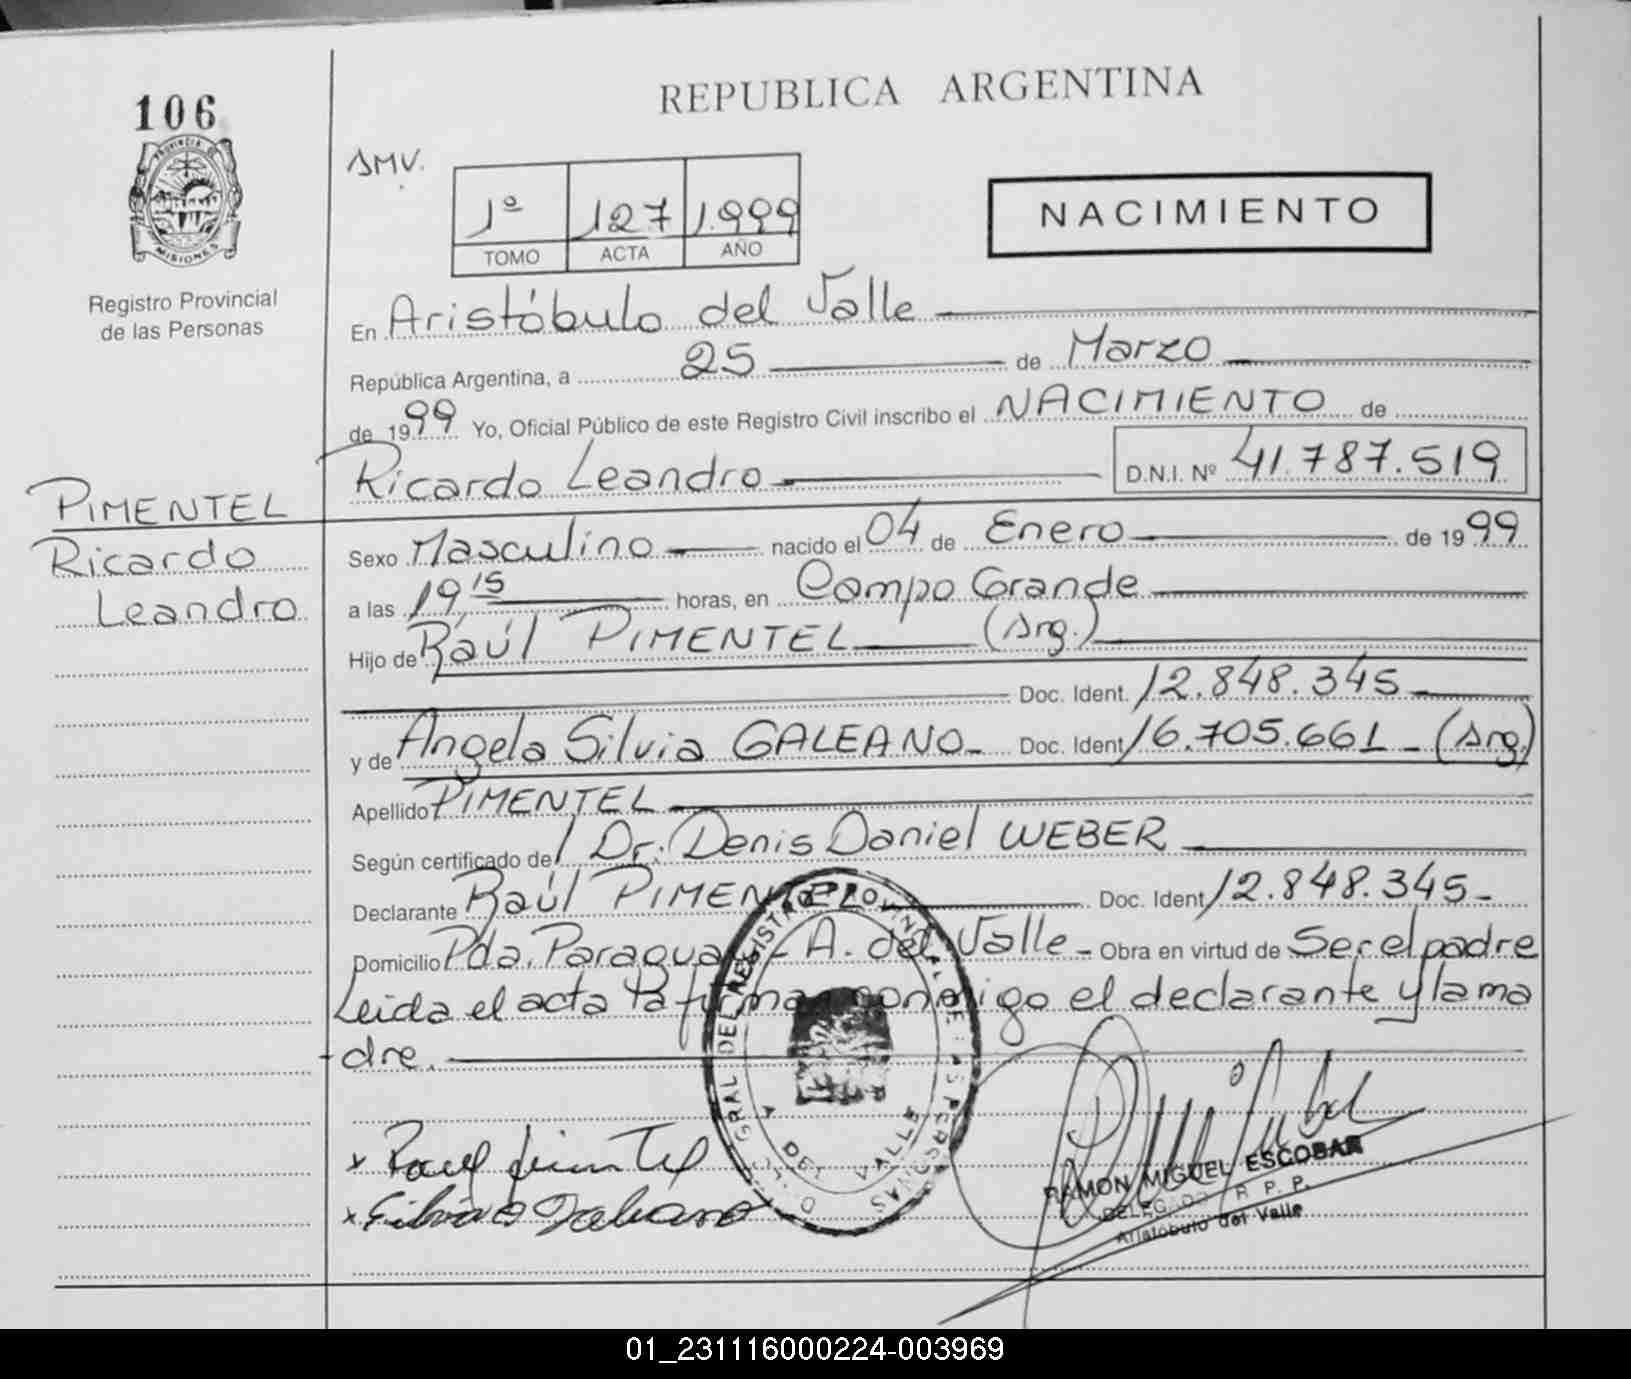 106
REPUBLICA ARGENTINA
PROVINCIA DE
MISIONES
Registro Provincial
de las Personas
SMV.
1º 127 1.999
TOMO ACTA AÑO
NACIMIENTO
En Aristóbulo del Valle
República Argentina, a 25 de Marzo
de 1999 Yo, Oficial Público de este Registro Civil inscribo el NACIMIENTO de
Ricardo Leandro D.N.I. Nº 41.787.519
PIMENTEL
Ricardo
Leandro
Sexo Masculino nacido el 04 de Enero de 1999
a las 19,15 horas, en Campo Grande
Hijo de Raúl PIMENTEL (Arg.)
Doc. Ident. 12.848.345
y de Angela Silvia GALEANO Doc. Ident 16.705.661 - (Arg.)
Apellido PIMENTEL
Según certificado del Dr. Denis Daniel WEBER
Declarante Raúl PIMENTEL Doc. Ident 12.848.345-
Domicilio Pda. Paraguay - A. del Valle - Obra en virtud de Ser el padre
Leida el acta la firman conmigo el declarante y la ma
dre.
GRAL DEL REGISTRO PROVINCIAL DE LAS PERSONAS
A. DEL VALLE
RAMON MIGUEL ESCOBAR
DELEGADO R. P. P.
Aristóbulo del Valle
01_231116000224-003969